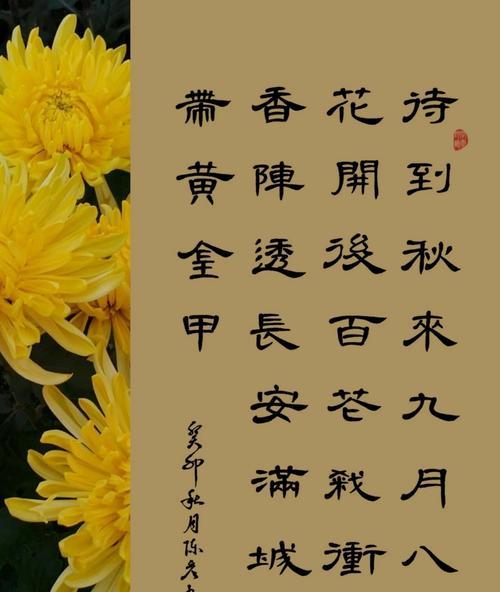 待到秋來九月八
花開後百花殺衝
香陣透長安滿城
帶黃金甲
癸卯秋月陈